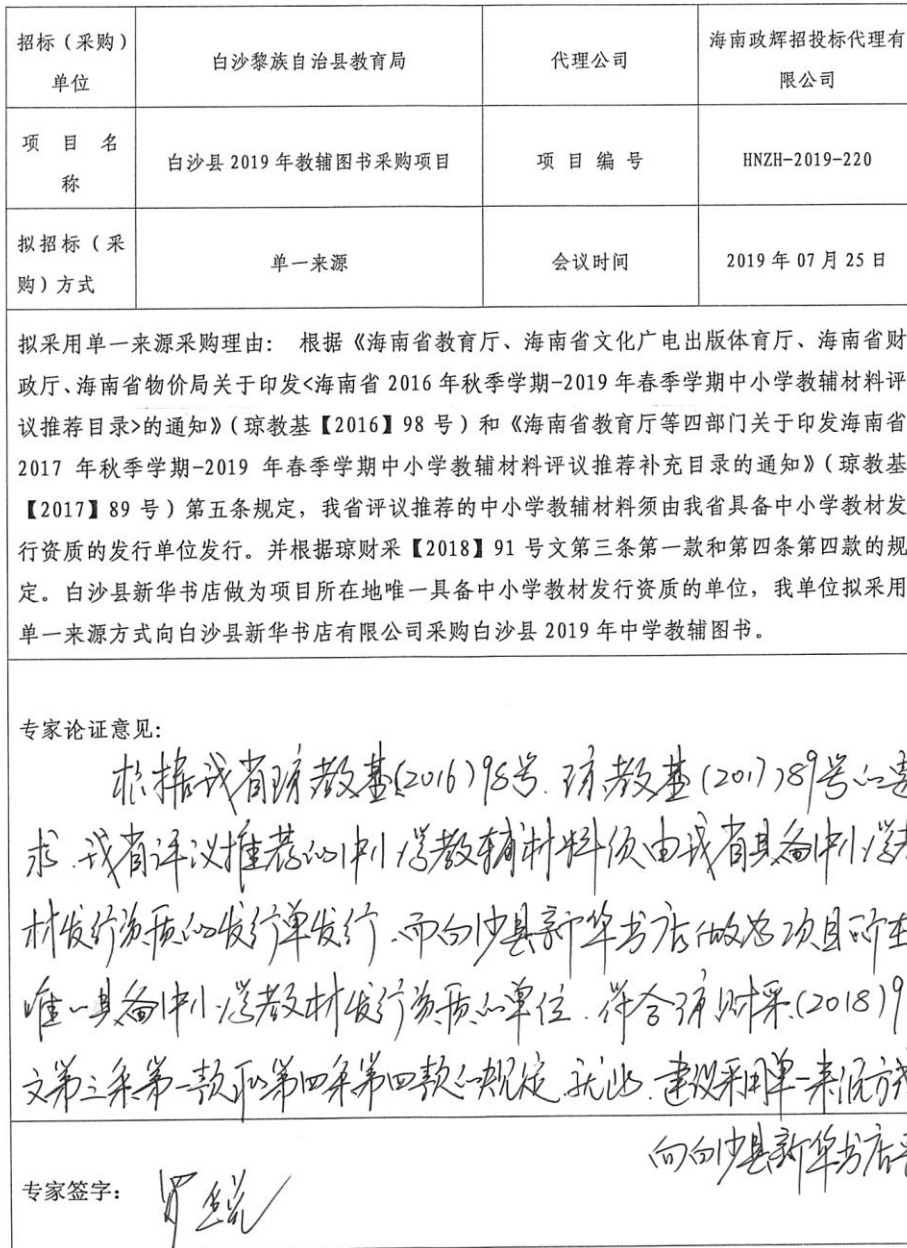 招标（采购）单位
白沙黎族自治县教育局
代理公司
海南政辉招投标代理有限公司
项目名称
白沙县 2019 年教辅图书采购项目
项目编号
HNZH-2019-220
拟招标（采购）方式
单一来源
会议时间
2019 年 07 月 25 日
拟采用单一来源采购理由： 根据《海南省教育厅、海南省文化广电出版体育厅、海南省财
政厅、海南省物价局关于印发<海南省 2016 年秋季学期-2019 年春季学期中小学教辅材料评
议推荐目录>的通知》（琼教基【2016】98 号）和《海南省教育厅等四部门关于印发海南省
2017 年秋季学期-2019 年春季学期中小学教辅材料评议推荐补充目录的通知》（琼教基
【2017】89 号）第五条规定，我省评议推荐的中小学教辅材料须由我省具备中小学教材发
行资质的发行单位发行。并根据琼财采【2018】91 号文第三条第一款和第四条第四款的规
定。白沙县新华书店做为项目所在地唯一具备中小学教材发行资质的单位，我单位拟采用
单一来源方式向白沙县新华书店有限公司采购白沙县 2019 年中学教辅图书。
专家论证意见：
根据我省琼教基(2016)98号.琼教基(2017)89号的要
求.我省评议推荐的中小学教辅材料须由我省具备中小学教
材发行资质的发行单发行.而白沙县新华书店做为项目所在
唯一具备中小学教材发行资质的单位.符合琼财采(2018)9
文第三条第一款和第四条第四款的规定.就此.建议采用单一来源方式
向白沙县新华书店
专家签字：